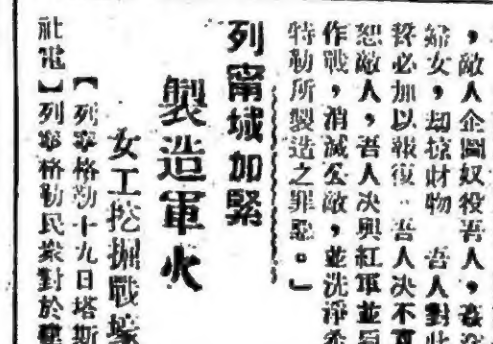 ，敵人企圖奴役吾人，姦淫
婦女，刧掠財物 吾人對此
誓必加以報復。吾人决不寬
恕敵人，吾人决與紅軍並肩
作戰，消滅公敵，並洗淨希
特勒所製造之罪惡。」
列甯城加緊
製造軍火
女工挖掘戰壕
【列寧格勒十九日塔斯
社電】列寧格勒民衆對於